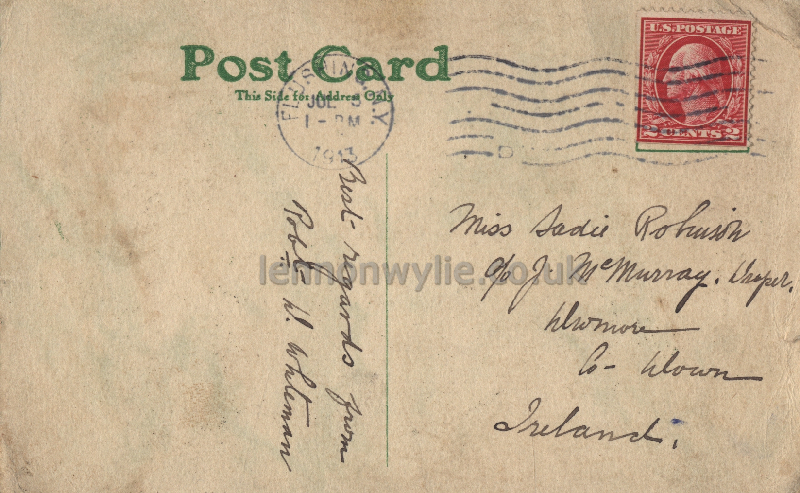 Post Card
This Side for Address Only
FLUSHING N.Y.
JUL 3
1 - PM
1913
U.S. POSTAGE
2 CENTS 2
Best regards from
Robt. W. Whiteman
Miss Sadie Robinson
c/o J. McMurray. Draper.
Dromore
Co- Down
Ireland.
lennonwylie.co.uk